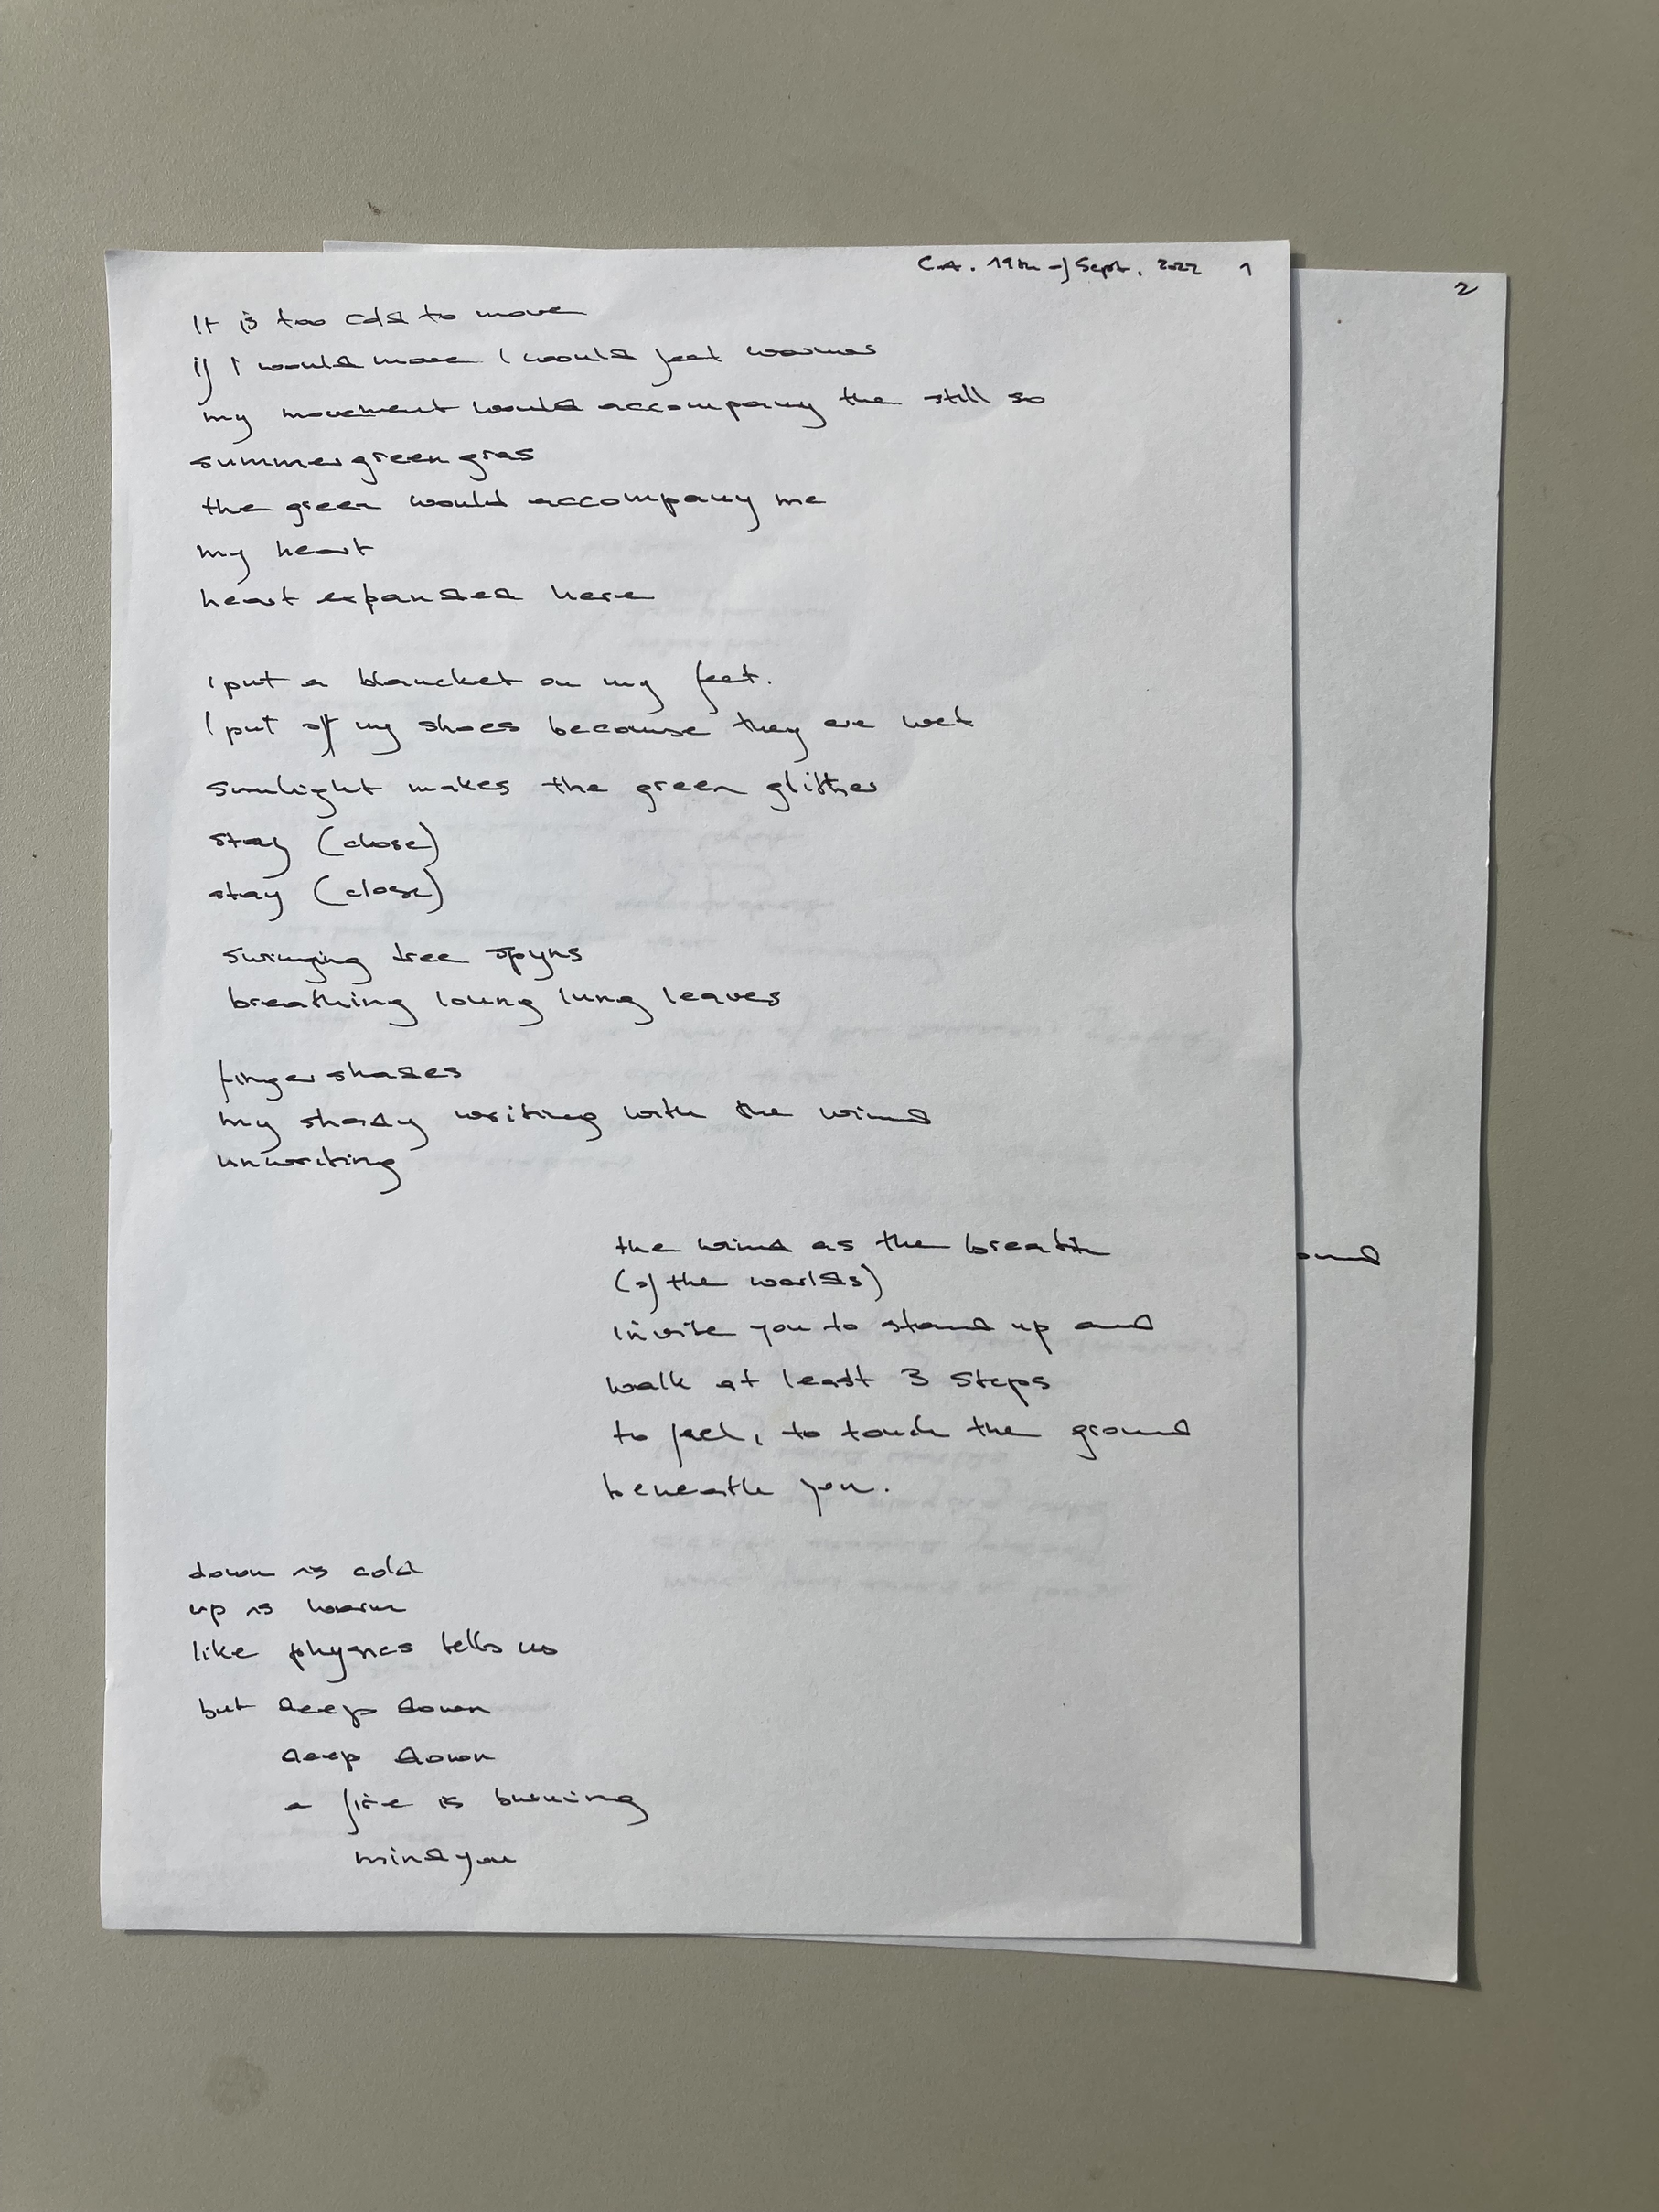 C.A. 19th of Sept. 2022 1
2
It is too cold to move
if I would move I would feel warmer
my movement would accompany the still so
summergreen gras
the green would accompany me
my heart
heart expanded here
I put a blancket on my feet.
I put off my shoes because they are wet
sunlight makes the green glitter
stay (close)
stay (close)
swinging tree spyns
breathing loung lung leaves
finger shades
my shady writing with the wind
unwriting
the wind as the breath
ound
(of the worlds)
invite you to stand up and
walk at least 3 steps
to feel, to touch the ground
beneath you.
down is cold
up is warm
like physics tells us
but deep down
deep down
a fire is burning
mind you